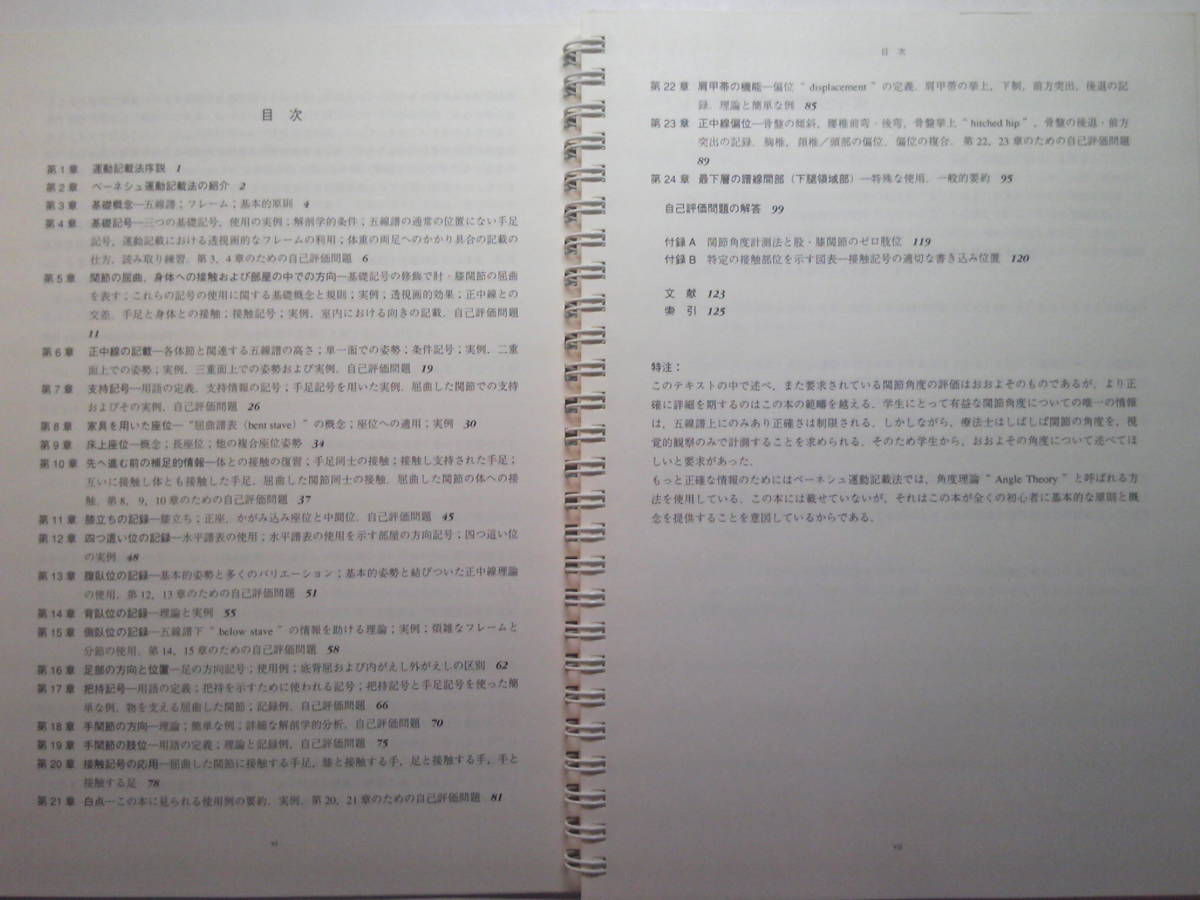 目 次
第1章 運動記載法序説 1
第2章 ベーネシュ運動記載法の紹介 2
第3章 基礎概念―五線譜；フレーム；基本的原則 4
第4章 基礎記号―三つの基礎記号，使用の実例；解剖学的条件；五線譜の通常の位置にない手足
記号，運動記載における透視画的なフレームの利用；体重の両足へのかかり具合の記載の
仕方，読み取り練習．第3，4章のための自己評価問題 6
第5章 関節の屈曲，身体への接触および部屋の中での方向―基礎記号の修飾で肘・膝関節の屈曲
を表す；これらの記号の使用に関する基礎概念と規則；実例；透視画的効果；正中線との
交差．手足と身体との接触；接触記号；実例．室内における向きの記載．自己評価問題
11
第6章 正中線の記載―各体節と関連する五線譜の高さ；単一面での姿勢；条件記号；実例．二重
面上での姿勢；実例．三重面上での姿勢および実例．自己評価問題 19
第7章 支持記号―用語の定義．支持情報の記号；手足記号を用いた実例．屈曲した関節での支持
およびその実例．自己評価問題 26
第8章 家具を用いた座位―“屈曲譜表（bent stave）”の概念；座位への適用；実例 30
第9章 床上座位―概念；長座位；他の複合座位姿勢 34
第10章 先へ進む前の補足的情報―体との接触の復習；手足同士の接触；接触し支持された手足；
互いに接触し体とも接触した手足．屈曲した関節同士の接触．屈曲した関節の体への接
触．第8，9，10章のための自己評価問題 37
第11章 膝立ちの記録―膝立ち；正座．かがみ込み座位と中間位．自己評価問題 45
第12章 四つ這い位の記録―水平譜表の使用；水平譜表の使用を示す部屋の方向記号；四つ這い位
の実例 48
第13章 腹臥位の記録―基本的姿勢と多くのバリエーション；基本的姿勢と結びついた正中線理論
の使用．第12，13章のための自己評価問題 51
第14章 背臥位の記録―理論と実例 55
第15章 側臥位の記録―五線譜下“below stave”の情報を助ける理論；実例；煩雑なフレームと
分節の使用．第14，15章のための自己評価問題 58
第16章 足部の方向と位置―足の方向記号；使用例；底背屈および内がえし外がえしの区別 62
第17章 把持記号―用語の定義；把持を示すために使われる記号；把持記号と手足記号を使った簡
単な例．物を支える屈曲した関節；記録例．自己評価問題 66
第18章 手関節の方向―理論；簡単な例；詳細な解剖学的分析．自己評価問題 70
第19章 手関節の肢位―用語の定義；理論と記録例．自己評価問題 75
第20章 接触記号の応用―屈曲した関節に接触する手足，膝と接触する手，足と接触する手，手と
接触する足 78
第21章 白点―この本に見られる使用例の要約．実例．第20，21章のための自己評価問題 81
vi
目 次
第22章 肩甲帯の機能―偏位“displacement”の定義．肩甲帯の挙上，下制，前方突出，後退の記
録．理論と簡単な例 85
第23章 正中線偏位―骨盤の傾斜，腰椎前弯・後弯，骨盤挙上“hitched hip”，骨盤の後退・前方
突出の記録．胸椎，頚椎／頭部の偏位．偏位の複合．第22，23章のための自己評価問題
89
第24章 最下層の譜線間部（下腿領域部）―特殊な使用．一般的要約 95
自己評価問題の解答 99
付録A 関節角度計測法と股・膝関節のゼロ肢位 119
付録B 特定の接触部位を示す図表―接触記号の適切な書き込み位置 120
文 献 123
索 引 125
特注：
このテキストの中で述べ，また要求されている関節角度の評価はおおよそのものであるが，より正
確に詳細を期するのはこの本の範疇を越える．学生にとって有益な関節角度についての唯一の情報
は，五線譜上にのみあり正確さは制限される．しかしながら，療法士はしばしば関節の角度を，視
覚的観察のみで計測することを求められる．そのため学生から，おおよその角度について述べてほ
しいと要求があった．
もっと正確な情報のためにはベーネシュ運動記載法では，角度理論“Angle Theory”と呼ばれる方
法を使用している．この本には載せていないが，それはこの本が全くの初心者に基本的な原則と概
念を提供することを意図しているからである．
vii